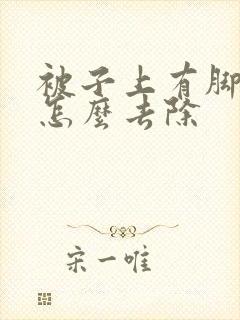 被子上有脚
怎麼去除
宋一唯